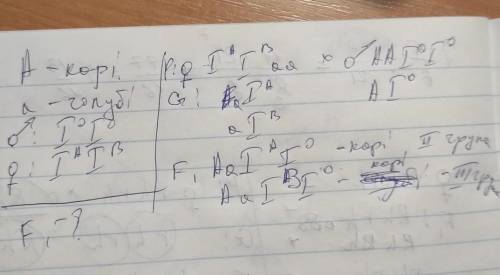 A - карі
a - голубі
♂: IᴼIᴼ
♀: IᴬIᴮ
F₁ - ?
P: ♀ IᴬIᴮaa × ♂ AAIᴼIᴼ
G: aIᴬ AIᴼ
aIᴮ
F₁ AaIᴬIᴼ - карі, II група
AaIᴮIᴼ - карі - III груп